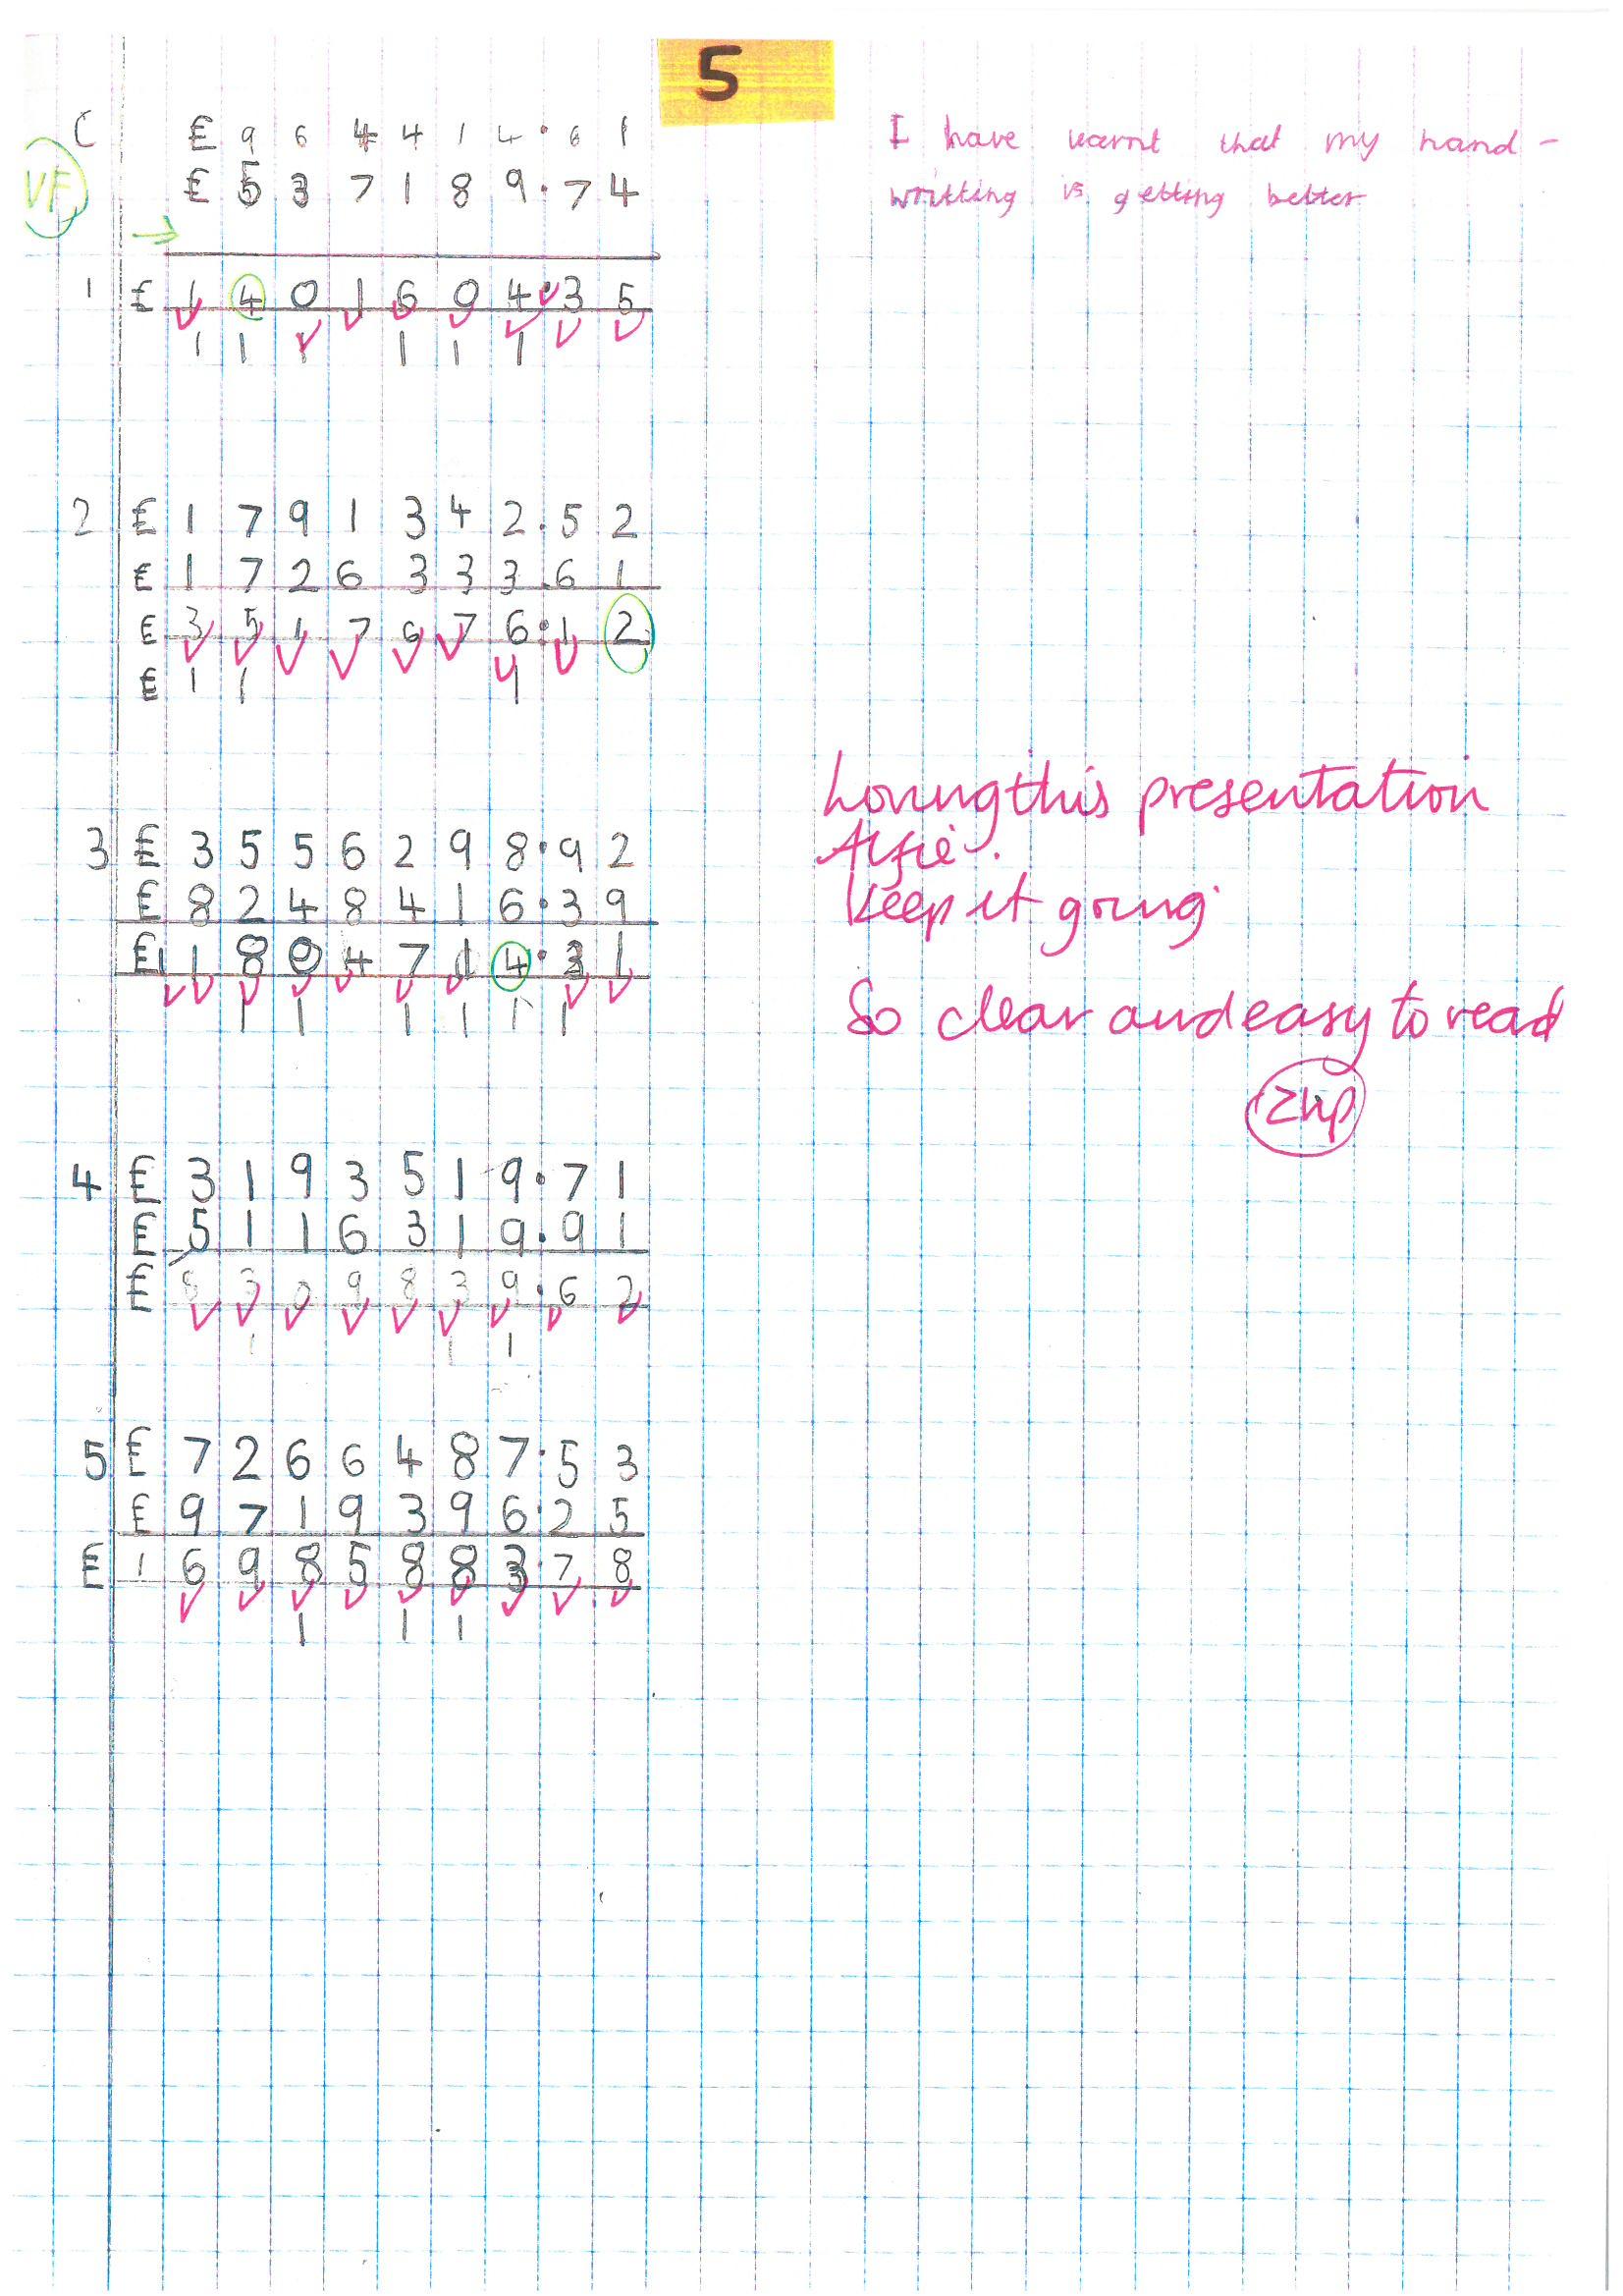 5
C £ 9 6 4 4 1 4 . 6 1
VF £ 5 3 7 1 8 9 . 7 4
1 £ 1 4 0 1 6 0 4 . 3 5
1 1 1 1 1 1
I have learnt that my hand-
writting is getting better
2 £ 1 7 9 1 3 4 2 . 5 2
£ 1 7 2 6 3 3 3 . 6 1
£ 3 5 1 7 6 7 6 . 1 2
£ 1 1 1
3 £ 3 5 5 6 2 9 8 . 9 2
£ 8 2 4 8 4 1 6 . 3 9
£ 1 1 8 0 4 7 1 4 . 3 1
1 1 1 1 1 1
Loving this presentation
Alfie.
Keep it going
So clear and easy to read
2hp
4 £ 3 1 9 3 5 1 9 . 7 1
£ 5 1 1 6 3 1 9 . 9 1
£ 8 3 0 9 8 3 9 . 6 2
1 1 1
5 £ 7 2 6 6 4 8 7 . 5 3
£ 9 7 1 9 3 9 6 . 2 5
£ 1 6 9 8 5 8 8 3 . 7 8
1 1 1